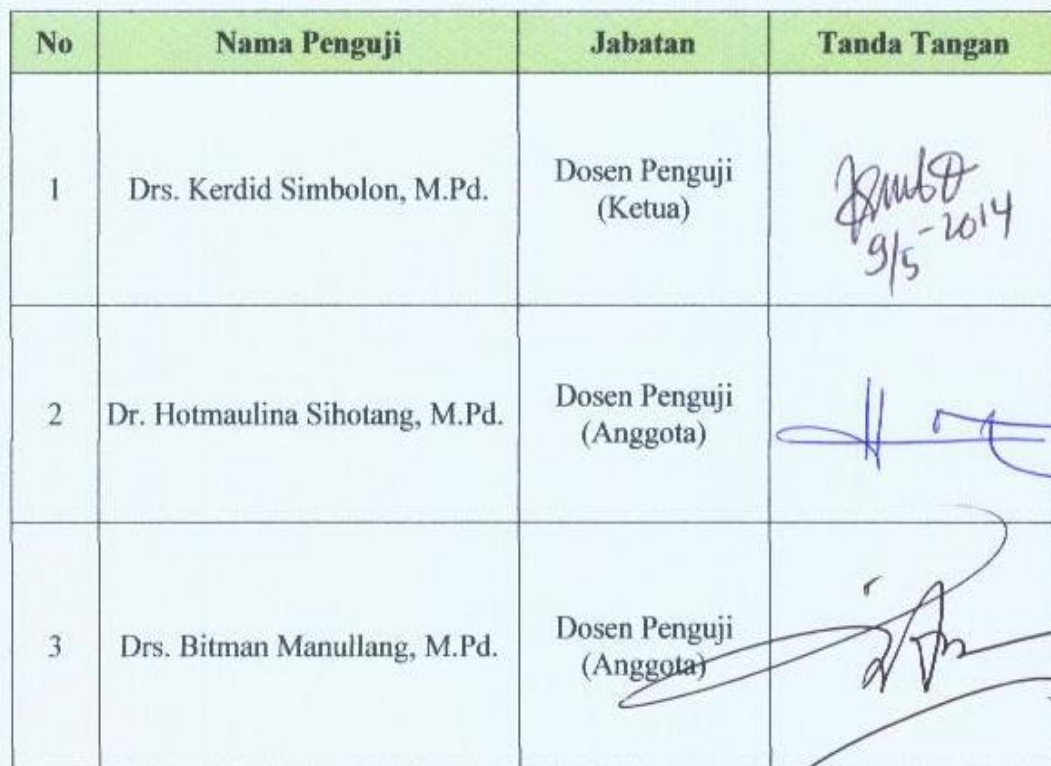 No Nama Penguji Jabatan Tanda Tangan
1 Drs. Kerdid Simbolon, M.Pd. Dosen Penguji
(Ketua)
9/5-2014
2 Dr. Hotmaulina Sihotang, M.Pd. Dosen Penguji
(Anggota)
3 Drs. Bitman Manullang, M.Pd. Dosen Penguji
(Anggota)